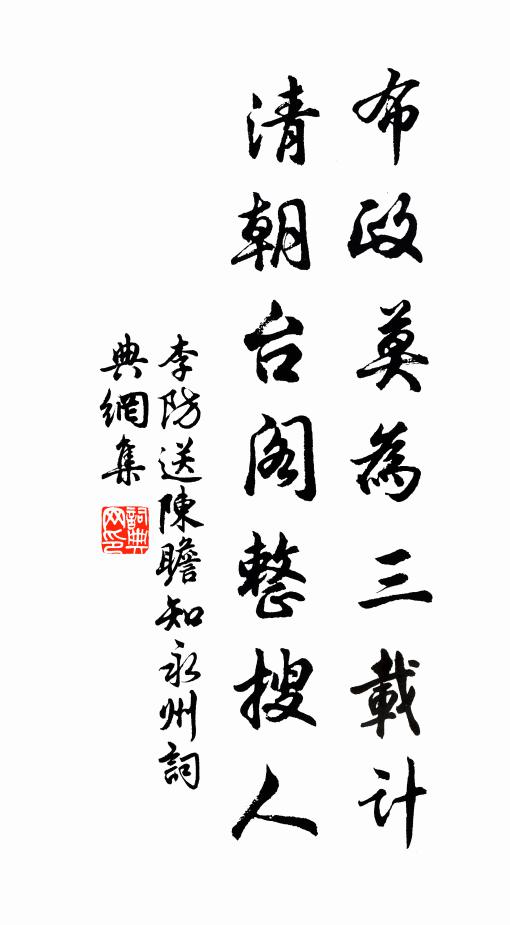 布政莫為三載計
清朝台阁整搜人
李防送陳瞻知永州詞
典網集
詞典网印